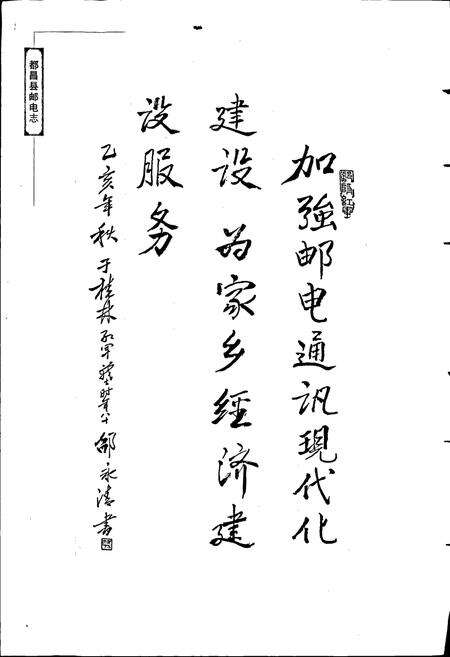 都昌县邮电志
加強邮电通讯現代化
建设 为家乡经济建
设服务
乙亥年秋于桂林红军 时年八十 邵永清书